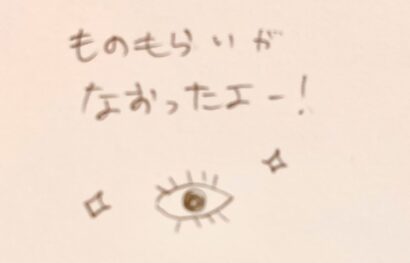 ものもらいが
なおったエー！